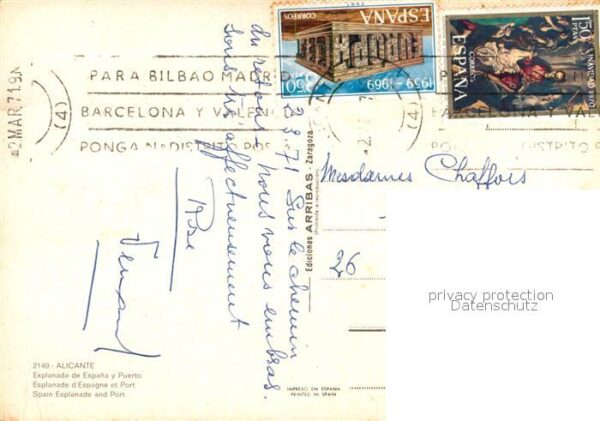 CORREOS
ESPAÑA
1959-1969
1,50
1,50
PTAS
NAVIDAD 1970
CORREOS
ESPAÑA
2 MAR. 71
(4)
PARA BILBAO MADRID
BARCELONA Y VALENC
PONGA Nº DISTRITO POS
(4)
BARCELONA Y VAL
DISTRITO P
2.3.71 Sur le chemin
du retour nous vous embras.
sons très affectueusement
Mesdames Chaffois
26
Ediciones ARRIBAS - Zaragoza
privacy protection
Datenschutz
2149.- ALICANTE
Explanada de España y Puerto
Esplanade d'Espagne et Port
Spain Esplanade and Port
IMPRESO EN ESPAÑA
PRINTED IN SPAIN